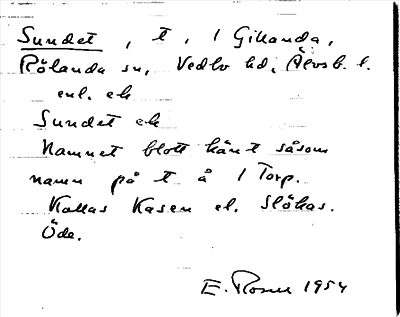 Sundet, t, i Gillanda,
Rölanda sn, Vedbo hd, Älvsb. l.
enl. ek
Sundet ek
Namnet blott känt såsom
namn på t å 1 Torp.
Kallas Kasen el. Slökas.
Öde.
E. Rosell 1954